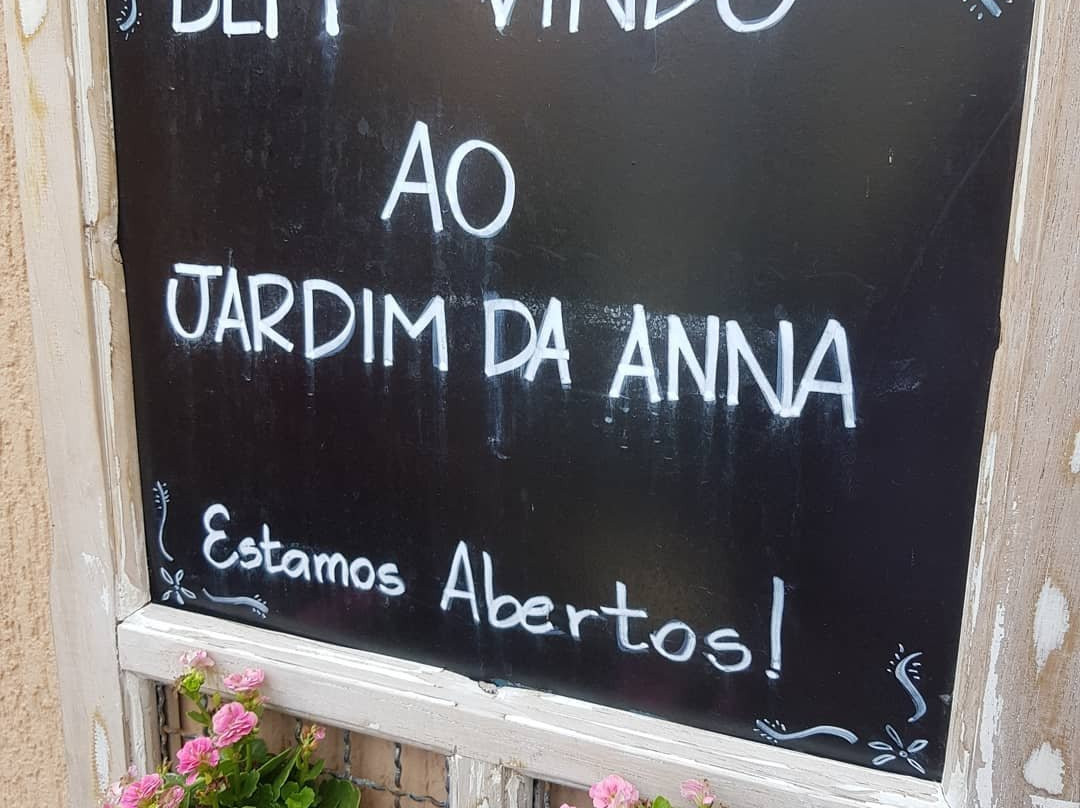 BEM VINDO
AO
JARDIM DA ANNA
Estamos Abertos!